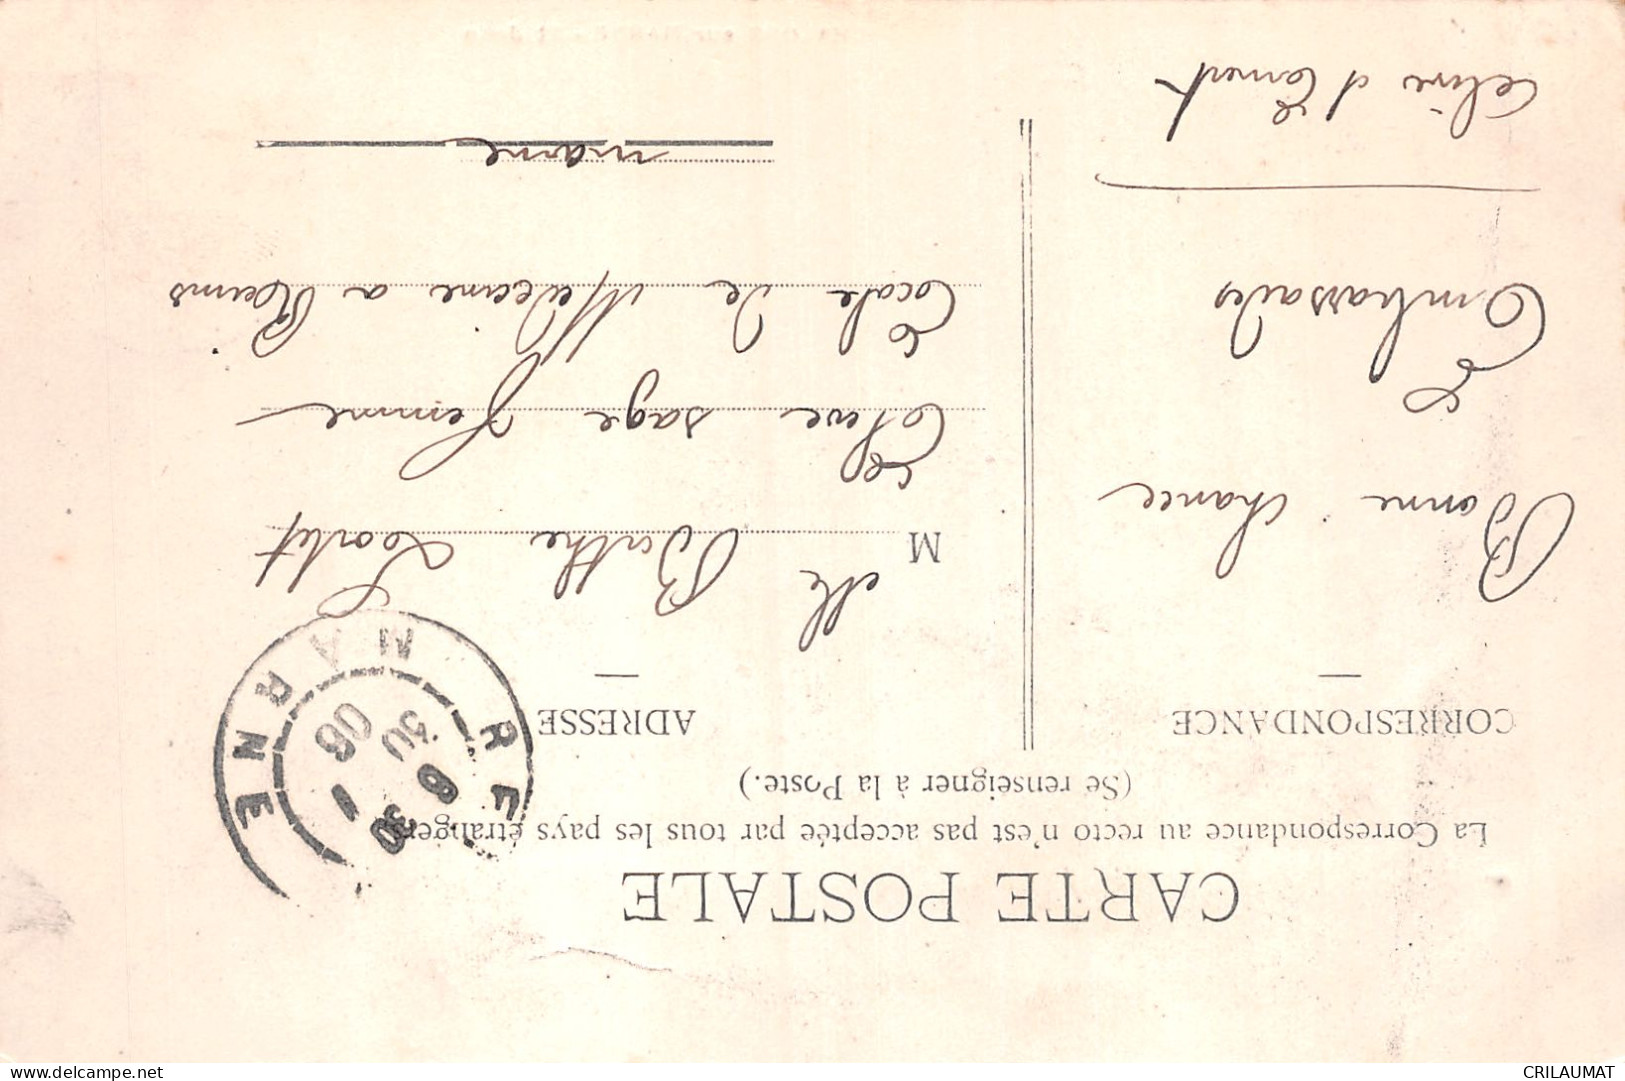 CARTE POSTALE
La Correspondance au recto n'est pas acceptée par tous les pays étrangers
(Se renseigner à la Poste.)
CORRESPONDANCE
Bonne chance
&
Embrassades
Celine et Ernest
ADRESSE
M elle Berthe
Eleve sage femme
Ecole de Medecine a Reims
marne
MARNE
8 30
30
1
06
CRILAUMAT